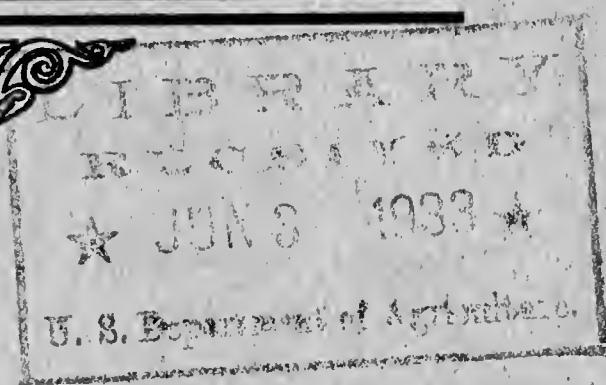 LIBRARY
RECEIVED
★ JUN 8 1933 ★
U. S. Department of Agriculture.